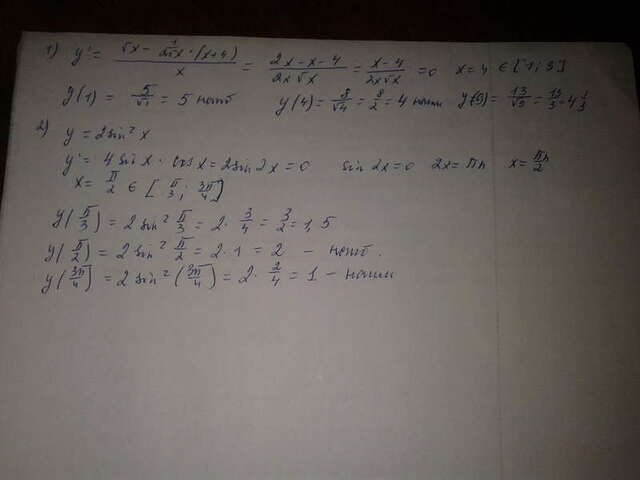 1) y' = (√x - 1/(2√x) · (x+4))/x = (2x - x - 4)/(2x√x) = (x-4)/(2x√x) = 0 x = 4 ∈ [1; 3]
y(1) = 5/√1 = 5 наиб y(4) = 8/√4 = 8/2 = 4 наим y(9) = 13/√9 = 13/3 = 4 1/3
2) y = 2sin² x
y' = 4 sin x · cos x = 2 sin 2x = 0 sin 2x = 0 2x = πn x = πn/2
x = π/2 ∈ [π/3; 3π/4]
y(π/3) = 2 sin² π/3 = 2 · 3/4 = 3/2 = 1,5
y(π/2) = 2 sin² π/2 = 2 · 1 = 2 - наиб.
y(3π/4) = 2 sin² (3π/4) = 2 · 2/4 = 1 - наим